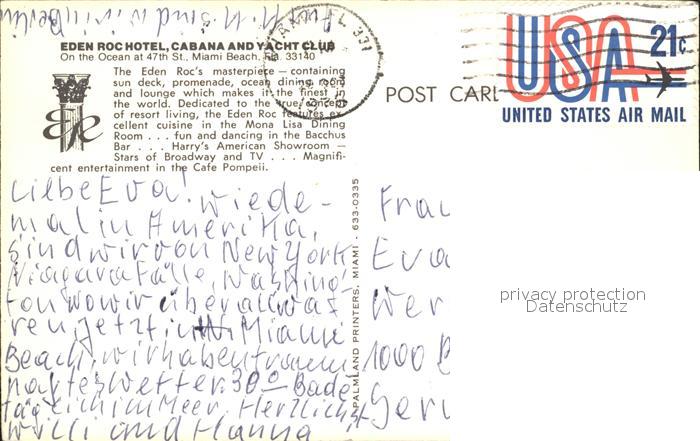 EDEN ROC HOTEL, CABANA AND YACHT CLUB
On the Ocean at 47th St., Miami Beach, Fla. 33140
The Eden Roc's masterpiece — containing
sun deck, promenade, ocean dining room
and lounge which makes it the finest in
the world. Dedicated to the true concept
of resort living, the Eden Roc features ex-
cellent cuisine in the Mona Lisa Dining
Room . . . fun and dancing in the Bacchus
Bar . . . Harry's American Showroom —
Stars of Broadway and TV . . . Magnifi-
cent entertainment in the Cafe Pompeii.
POST CARD
USA 21c
UNITED STATES AIR MAIL
Liebe Eva! Wiede-
mal in Amerika,
sind wir von New York
Niagarafälle, Washing-
ton wo wir überall wa
ren jetzt in Miami
Beach, wir haben traum
haftes Wetter 30° Bade
täglich im Meer. Herzlichst
Willi und Hanna
PALMLAND PRINTERS, MIAMI . 633-0335
Frau
Eva
Wer
1000 B
Ger
privacy protection
Datenschutz